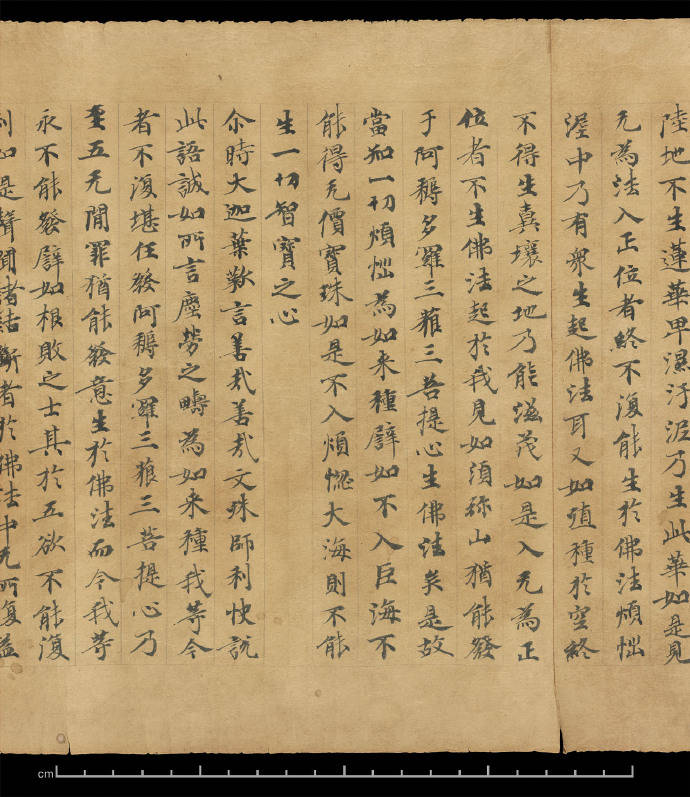 陸地不生蓮華甲濕汙泥乃生此華如是見
无為法入正位者終不復能生於佛法煩惱
泥中乃有衆生起佛法耳又如殖種於空終
不得生糞壤之地乃能滋茂如是入无為正
位者不生佛法起於我見如須弥山猶能發
于阿耨多羅三藐三菩提心生佛法矣是故
當知一切煩惱為如来種譬如不入巨海不
能得无價寶珠如是不入煩惱大海則不能
生一切智寶之心
尒時大迦葉歎言善哉善哉文殊師利快說
此語誠如所言塵勞之疇為如来種我等今
者不復堪任發阿耨多羅三藐三菩提心乃
至五无間罪猶能發意生於佛法而今我等
永不能發譬如根敗之士其於五欲不能復
利如是聲聞諸結斷者於佛法中无所復益
cm